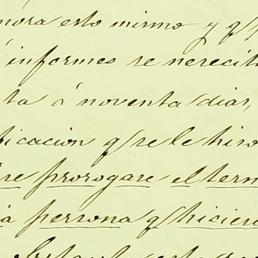 nora esto mismo y q
informes se necesit
ta á noventa dias,
ficacion q se le hiso
re prorogare el term
a persona q hicier